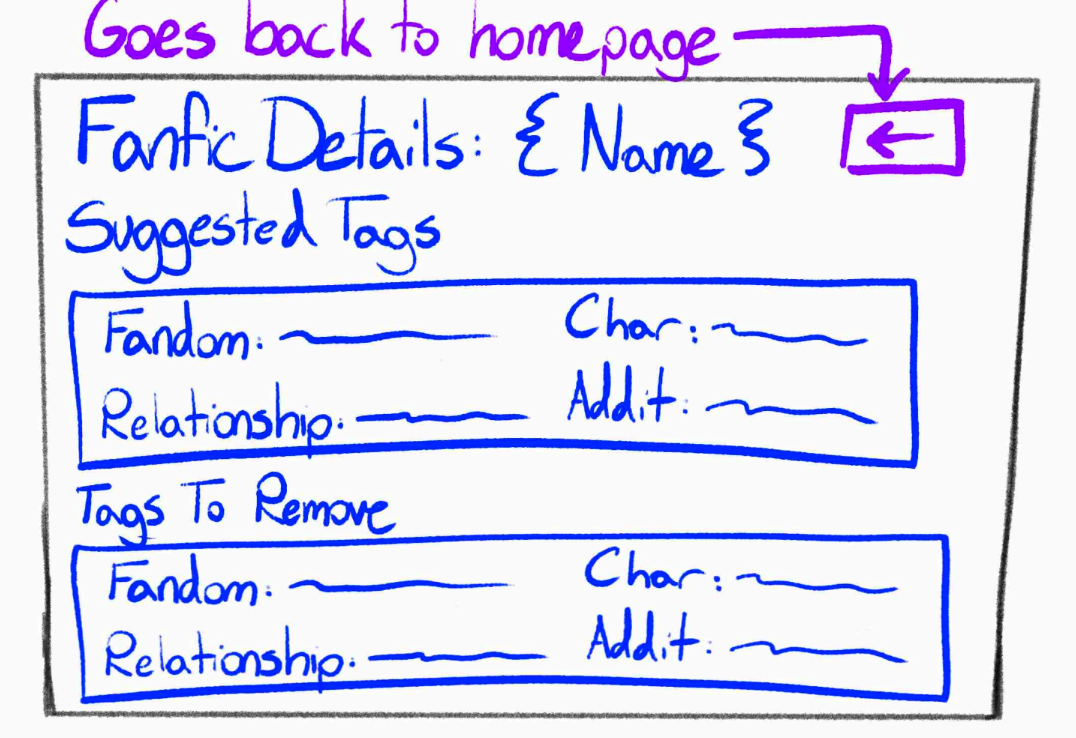 Goes back to homepage
Fanfic Details: { Name } ←
Suggested Tags
Fandom: Char:
Relationship: Addit:
Tags To Remove
Fandom: Char:
Relationship: Addit: